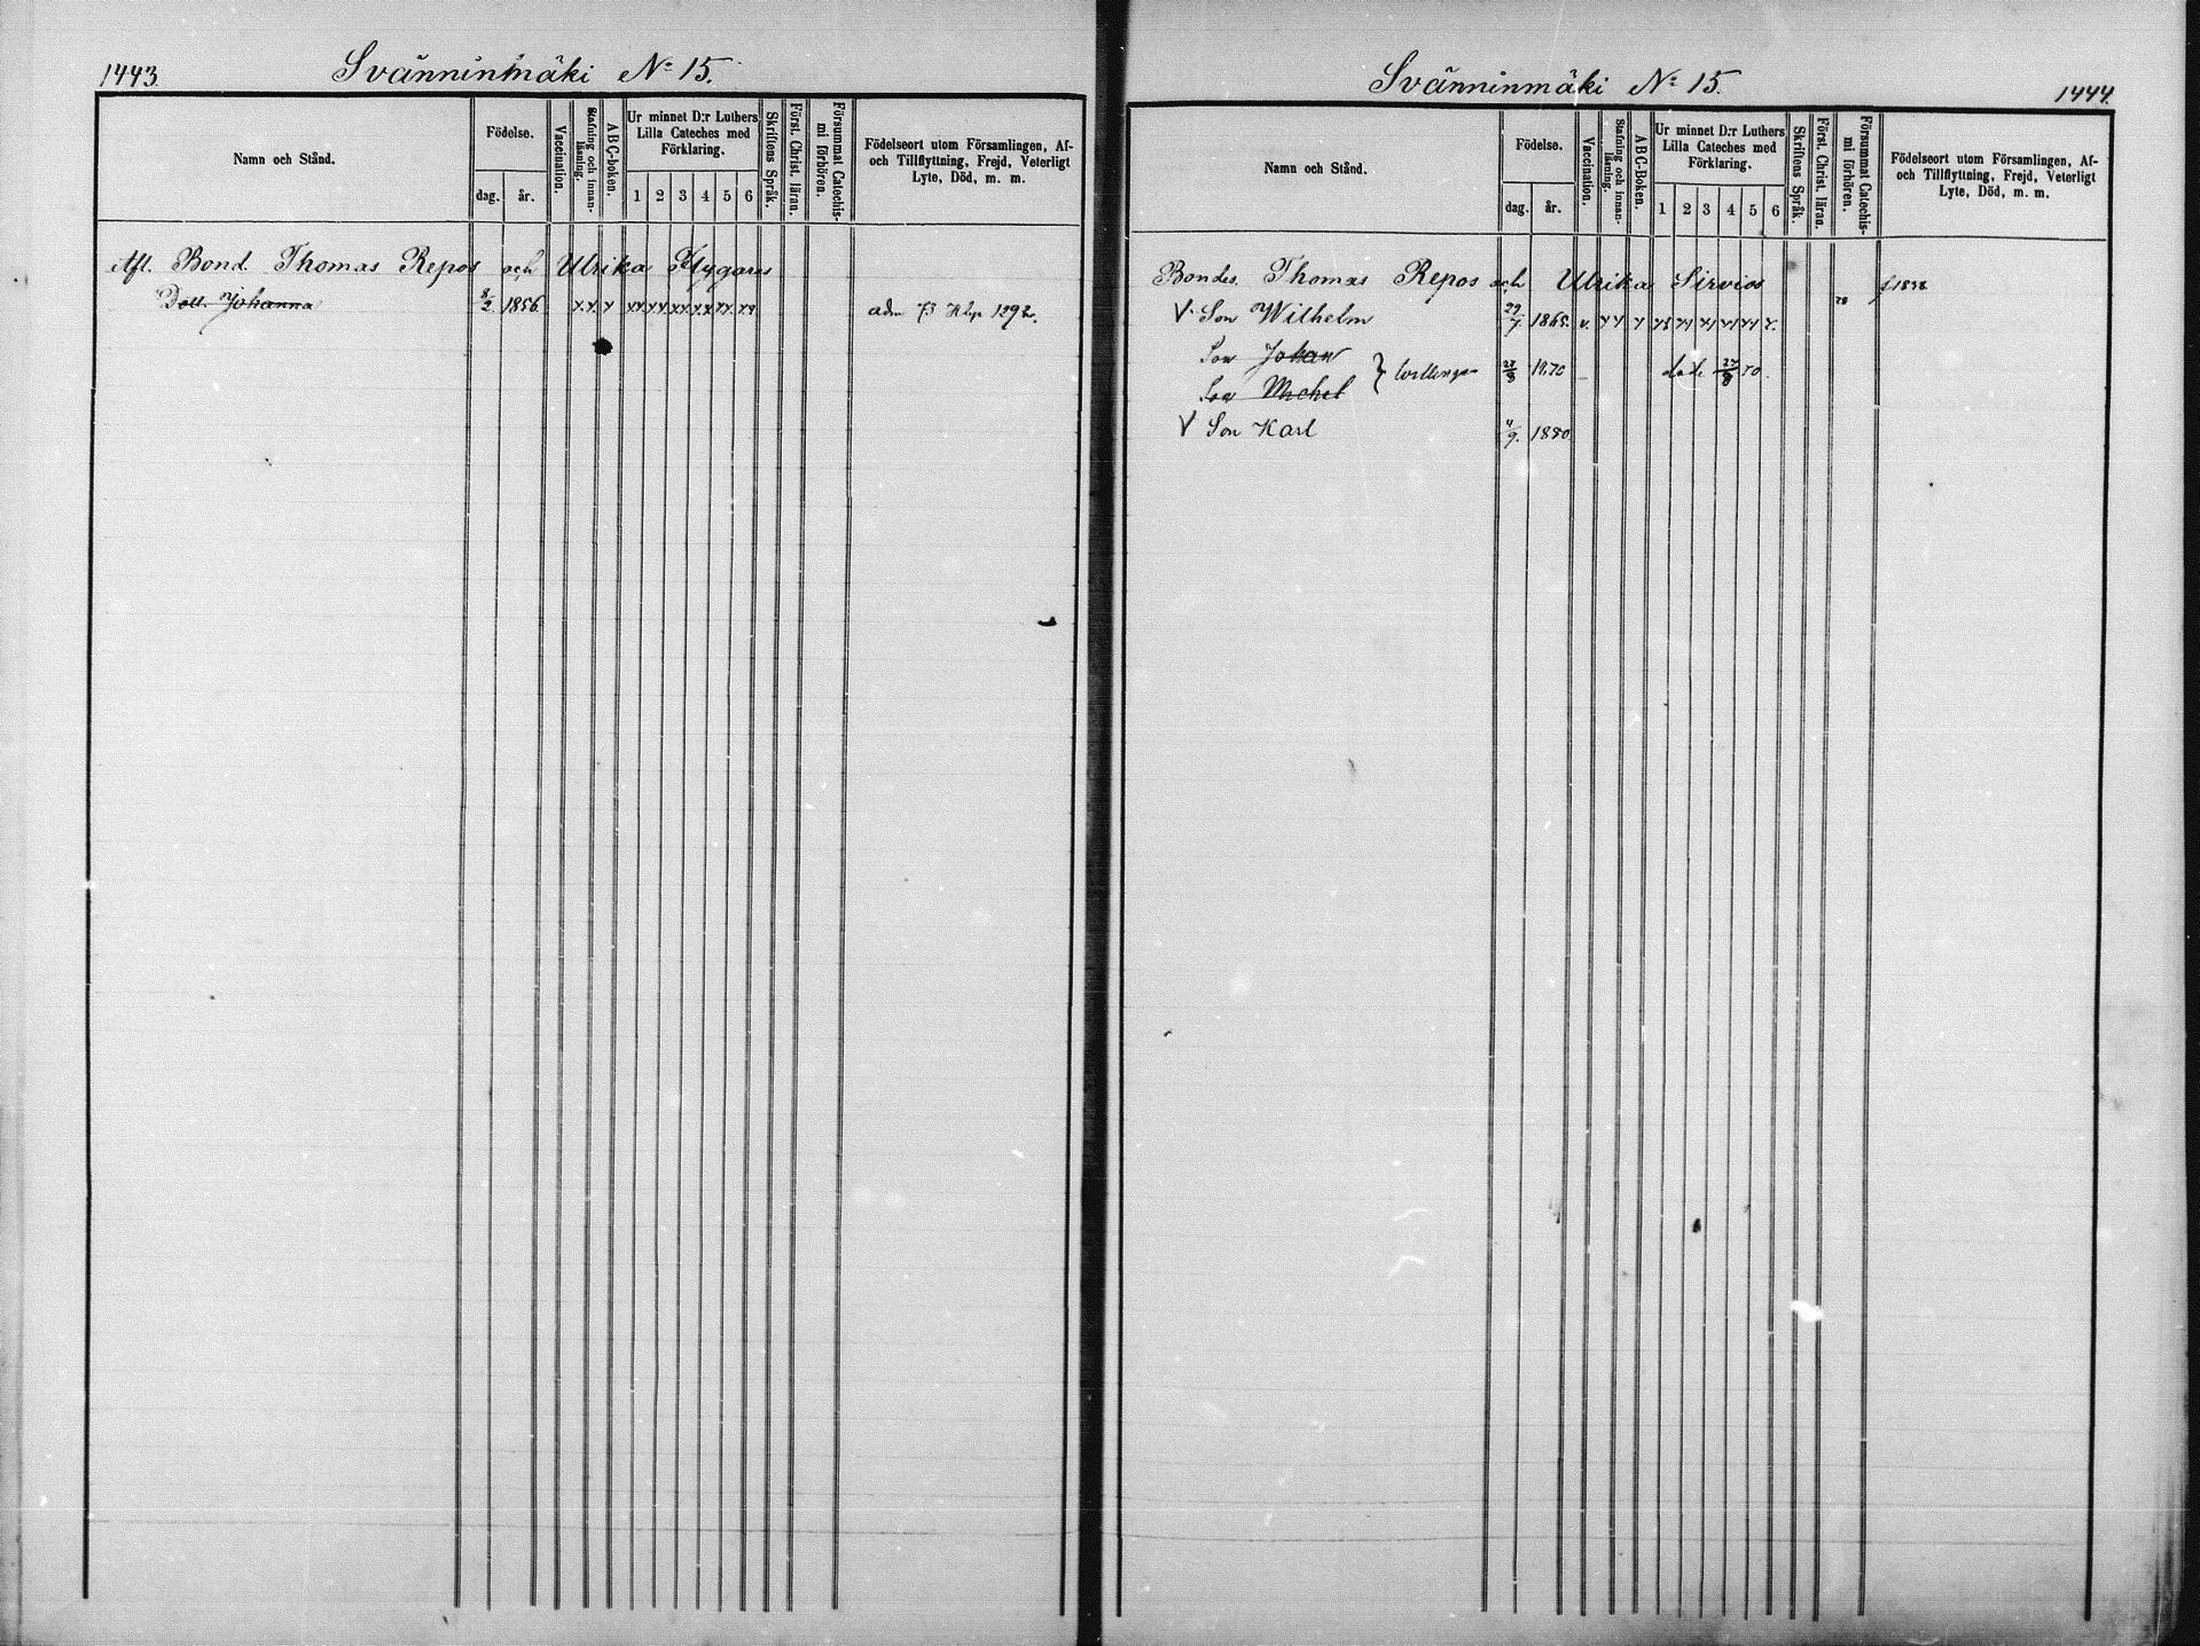 1443.
Svänninmäki No 15.
Namn och Stånd.
Födelse.
dag.
år.
Vaccination.
Stafning och innan-
läsning.
ABC-boken.
Ur minnet D:r Luthers
Lilla Cateches med
Förklaring.
1 2 3 4 5 6
Skriftens Språk.
Först. Christ. läran.
Försummat Catechis-
mi förhören.
Födelseort utom Församlingen, Af-
och Tillflyttning, Frejd, Veterligt
Lyte, Död, m. m.
Afl. Bond. Thomas Repos och Ulrika Flygares
Dott. Johanna 8/2 1856.
Svänninmäki No 15.
1444.
Namn och Stånd.
Födelse.
dag.
år.
Vaccination.
Stafning och innan-
läsning.
ABC-Boken.
Ur minnet D:r Luthers
Lilla Cateches med
Förklaring.
1 2 3 4 5 6
Skriftens Språk.
Först. Christ. läran.
Försummat Catechis-
mi förhören.
Födelseort utom Församlingen, Af-
och Tillflyttning, Frejd, Veterligt
Lyte, Död, m. m.
Bondes. Thomas Repos och Ulrika Sirvios
V. Son Wilhelm 1865. v.
Son Johan
Son Michel
V Son Karl 1880